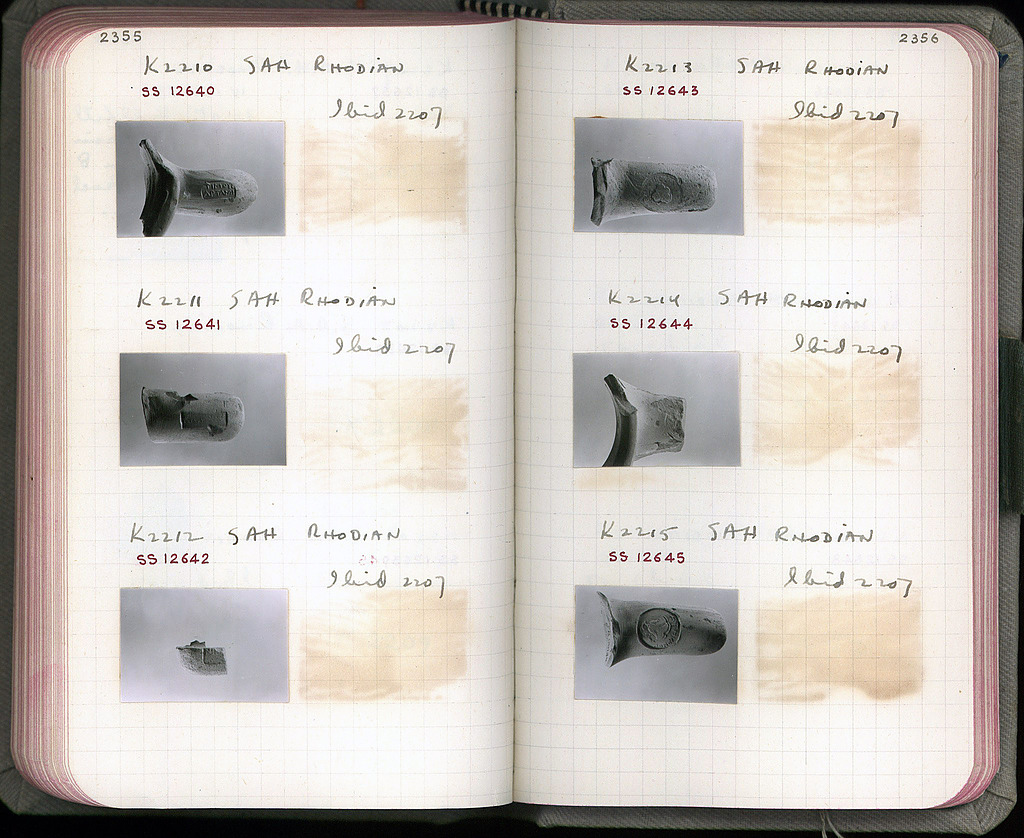 2355
K2210 SAH RHODIAN
SS 12640
Ibid 2207
K2211 SAH RHODIAN
SS 12641
Ibid 2207
K2212 SAH RHODIAN
SS 12642
Ibid 2207
2356
K2213 SAH RHODIAN
SS 12643
Ibid 2207
K2214 SAH RHODIAN
SS 12644
Ibid 2207
K2215 SAH RHODIAN
SS 12645
Ibid 2207